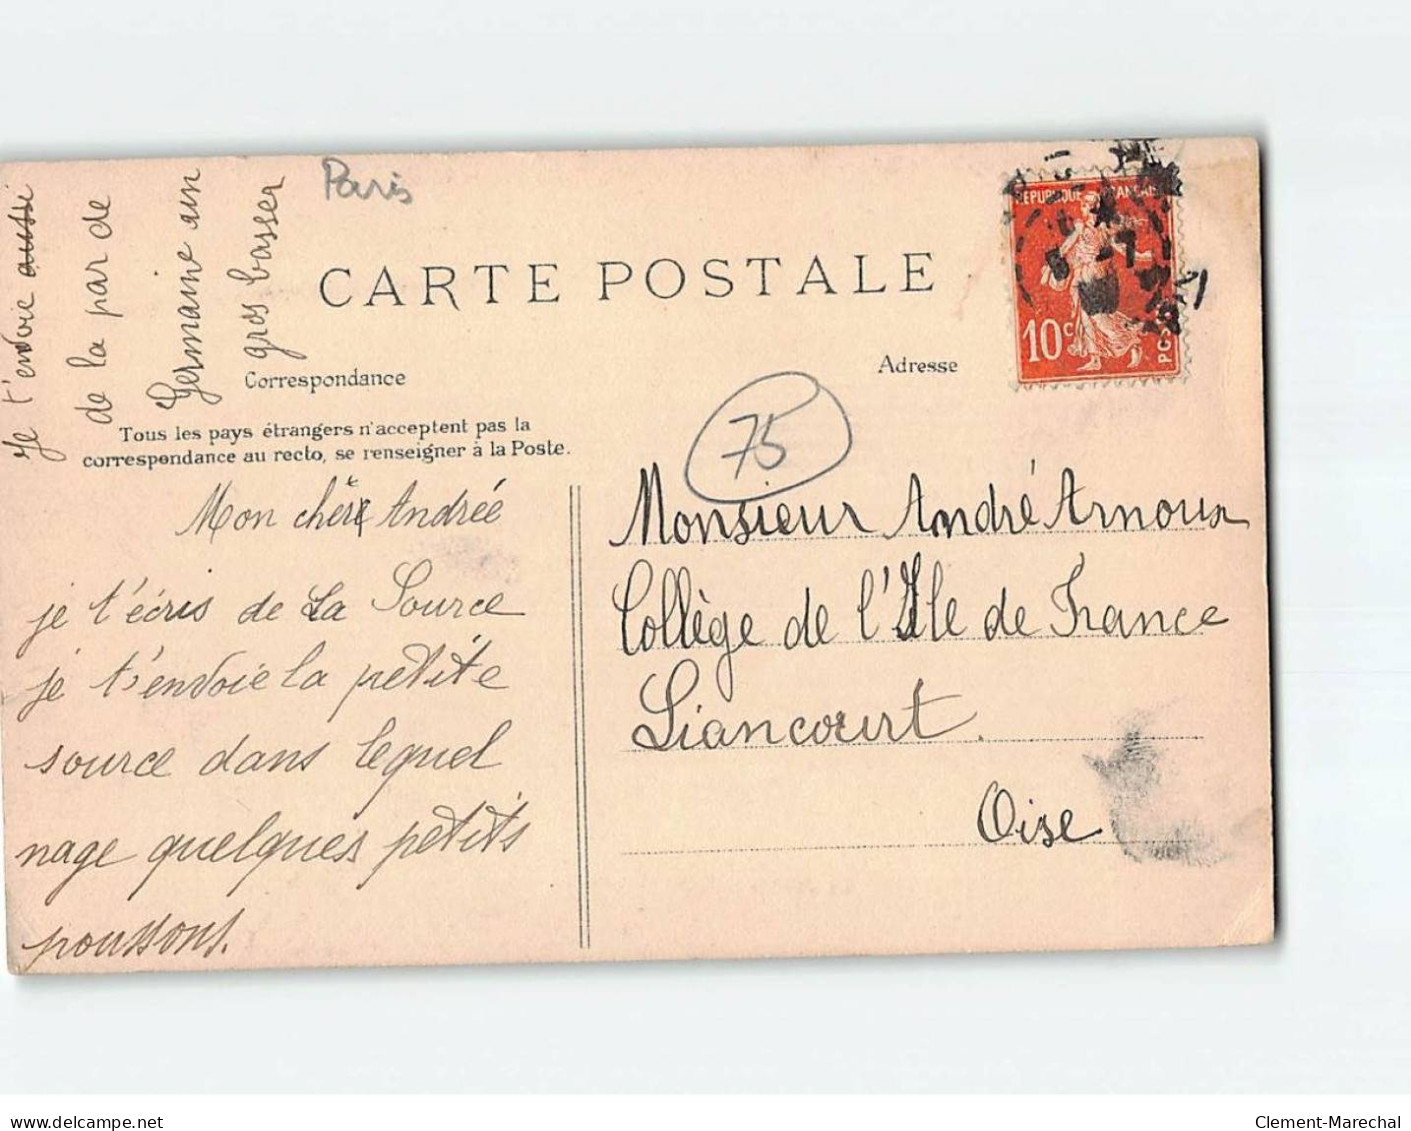 Je t'envoie aussi
de la par de
Germaine un
gros basser
Paris
CARTE POSTALE
Correspondance
Adresse
Tous les pays étrangers n'acceptent pas la
correspondance au recto, se renseigner à la Poste.
RÉPUBLIQUE FRANÇAISE
10c
POSTES
75
Mon chère Andrée
je t'écris de La Source
je t'envoie la petite
source dans lequel
nage quelques petits
poussons.
Monsieur André Arnoux
Collège de l'Ile de France
Liancourt.
Oise
delcampe.net
Clement-Marechal